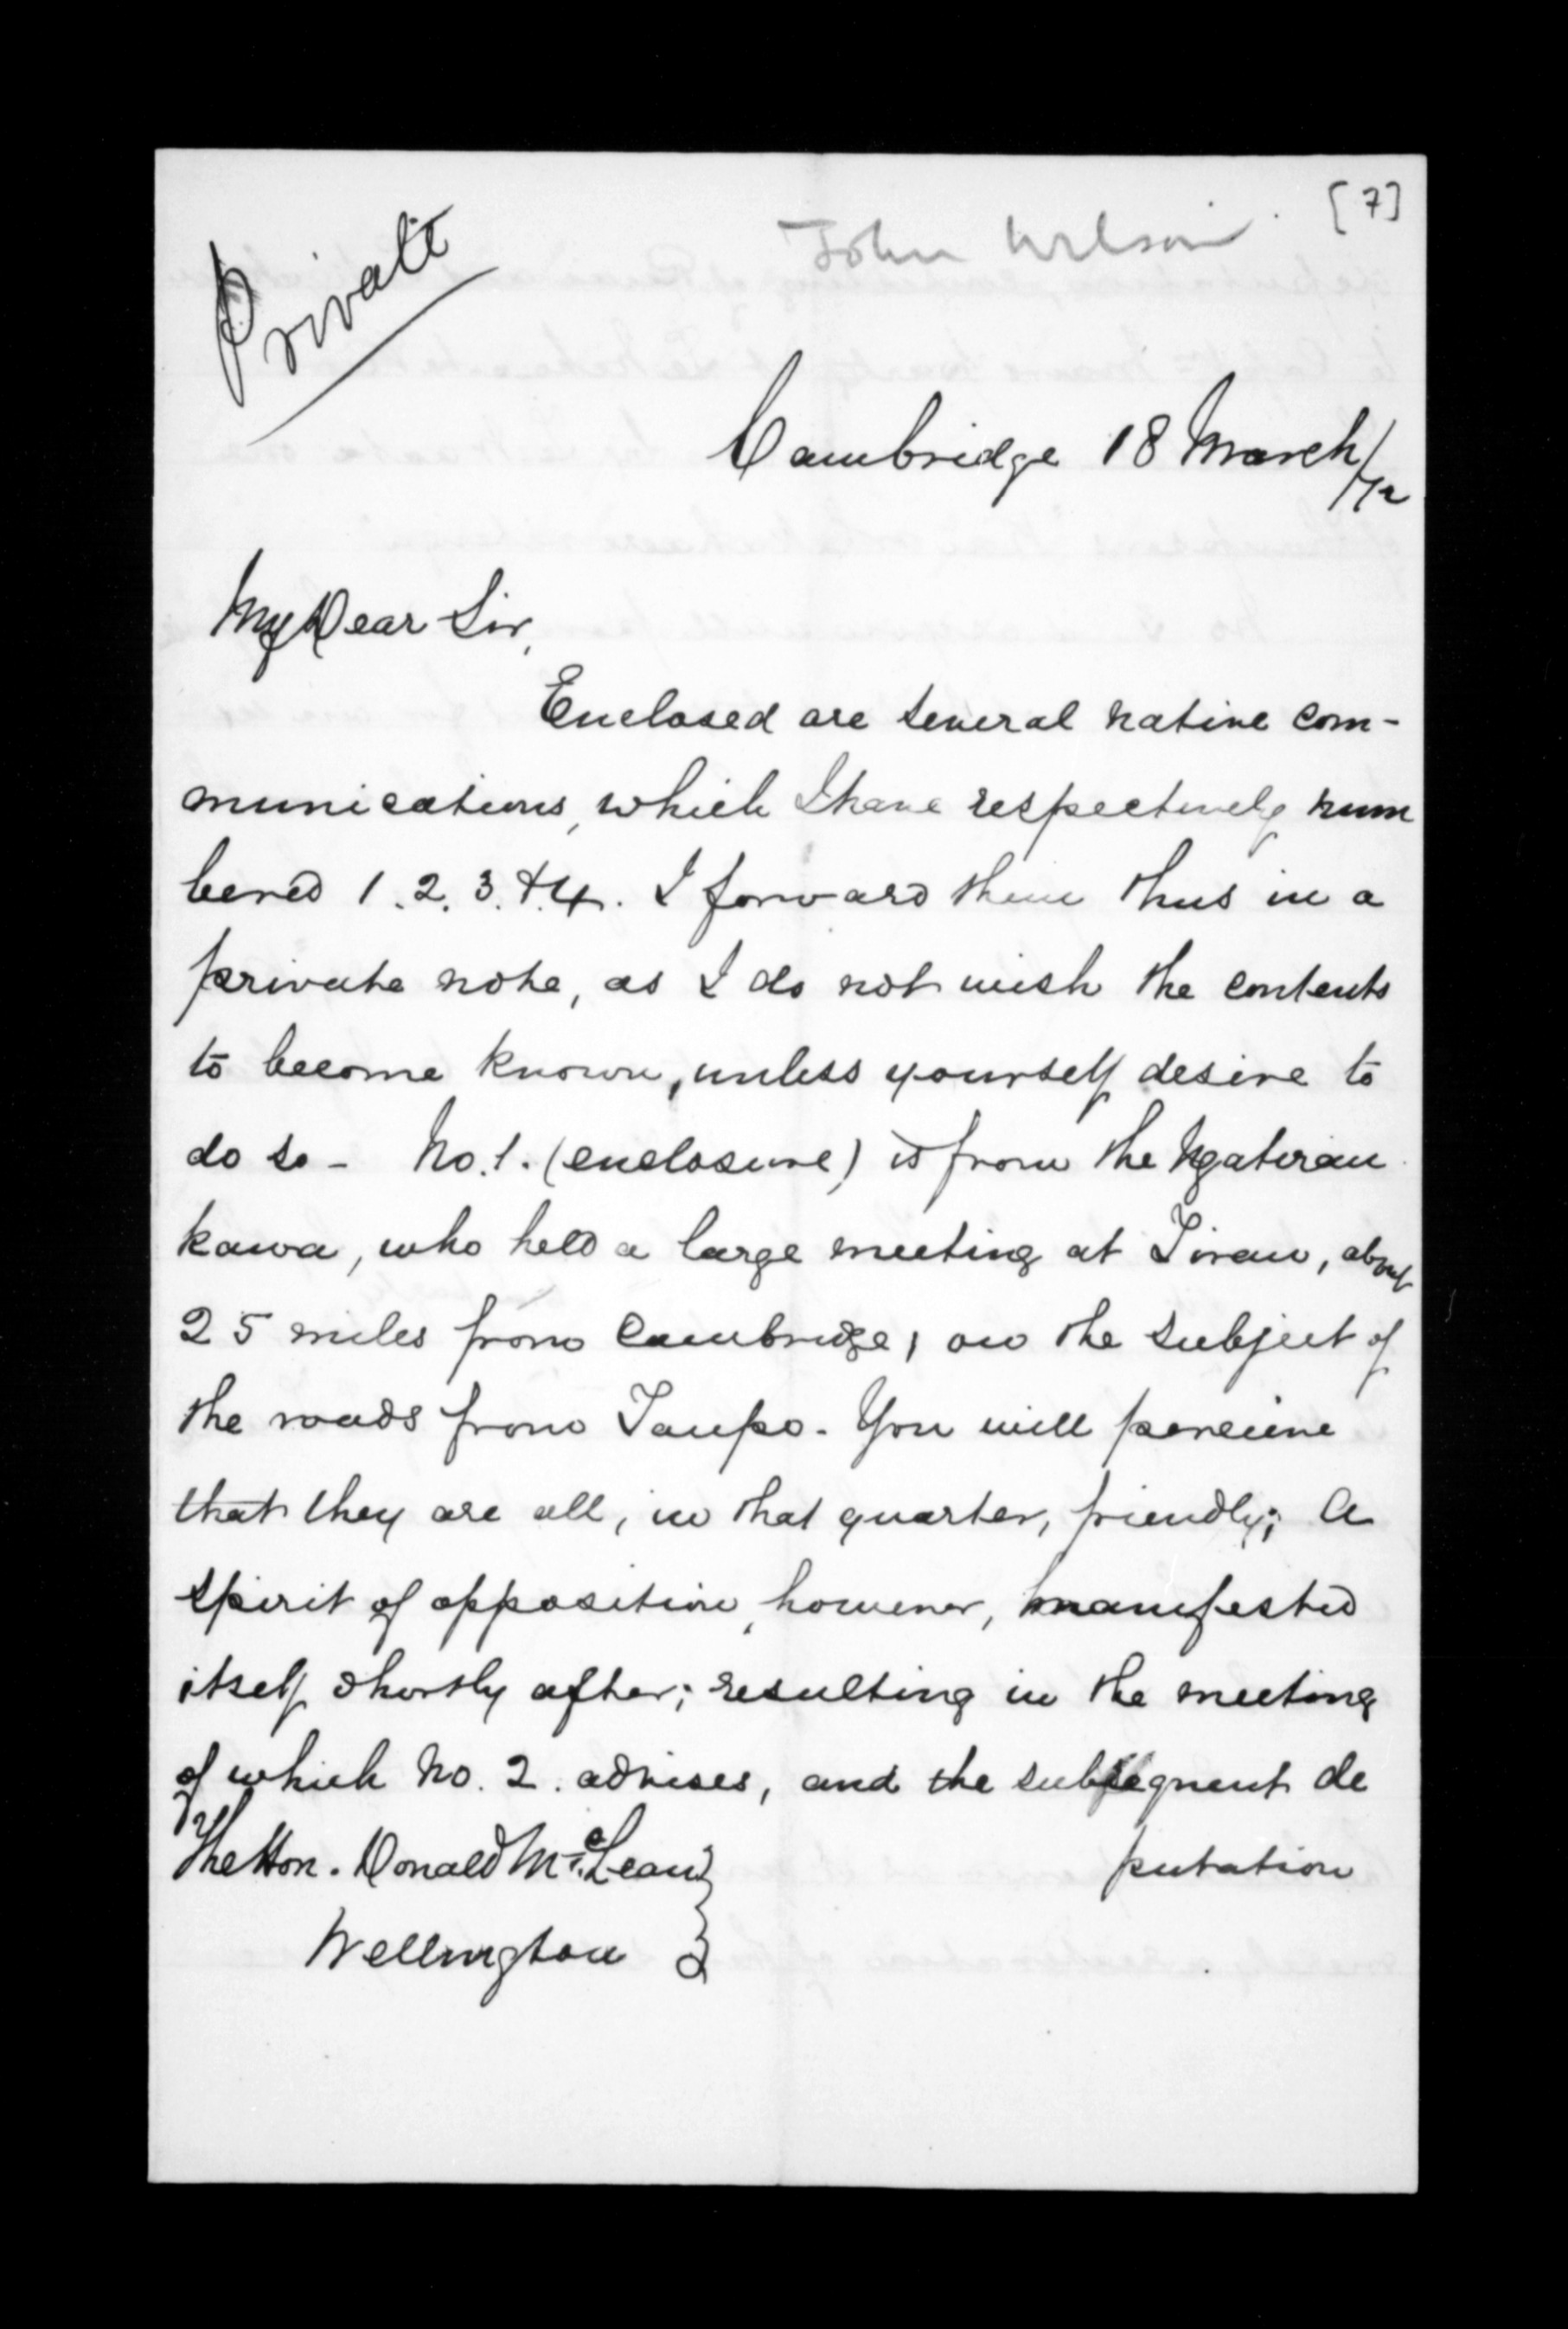 [7]
John Wilson
Private
Cambridge 18 March/72
My Dear Sir,
Enclosed are several native com-
munications, which I have respectively num
bered 1. 2. 3. & 4. I forward them thus in a
private note, as I do not wish the contents
to become known, unless yourself desire to
do so - No. 1. (enclosure) is from the Ngatirau
kawa, who held a large meeting at Tirau, about
25 miles from Cambridge, on the subject of
the roads from Taupo. You will perceive
that they are all, in that quarter, friendly; a
spirit of opposition, however, manifested
itself shortly after; resulting in the meeting
of which No. 2. advises, and the subsequent de
putation
The Hon. Donald McLean
Wellington